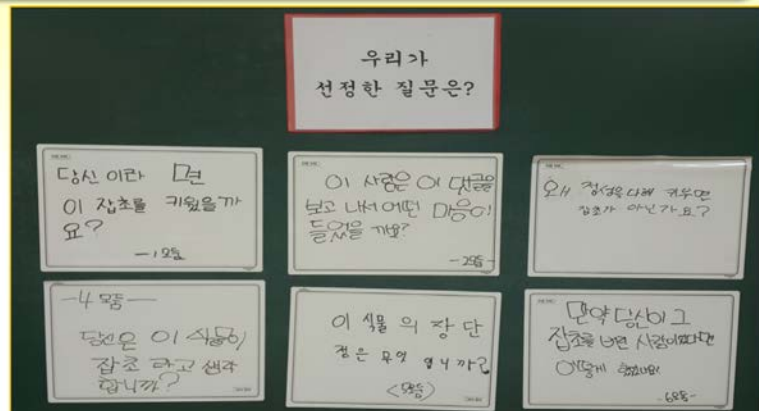 우리가
선정한 질문은?
당신 이라 면
이 잡초를 키웠을까
요?
-1모둠
이 사람은 이 댓글을
보고 나서 어떤 마음이
들었을 까요?
-2모둠-
왜 정성을 다해 키우면
잡초가 아닌가요?
-4모둠-
당신은 이 식물이
잡초 라고 생각
합니까?
이 식물 의 장 단
점은 무엇 입니까?
<모둠>
만약 당신이 그
잡초를 버린 사람이었다면
어떻게
-6모둠-